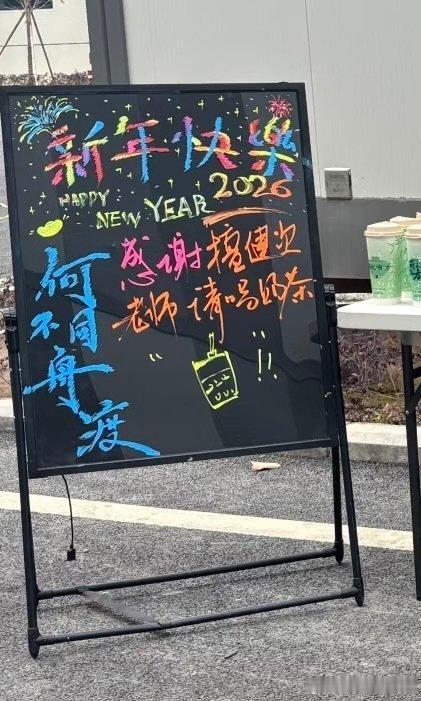 新年快樂
HAPPY
NEW YEAR 2026
何不同舟渡
感谢檀健次
老师请喝奶茶
!!